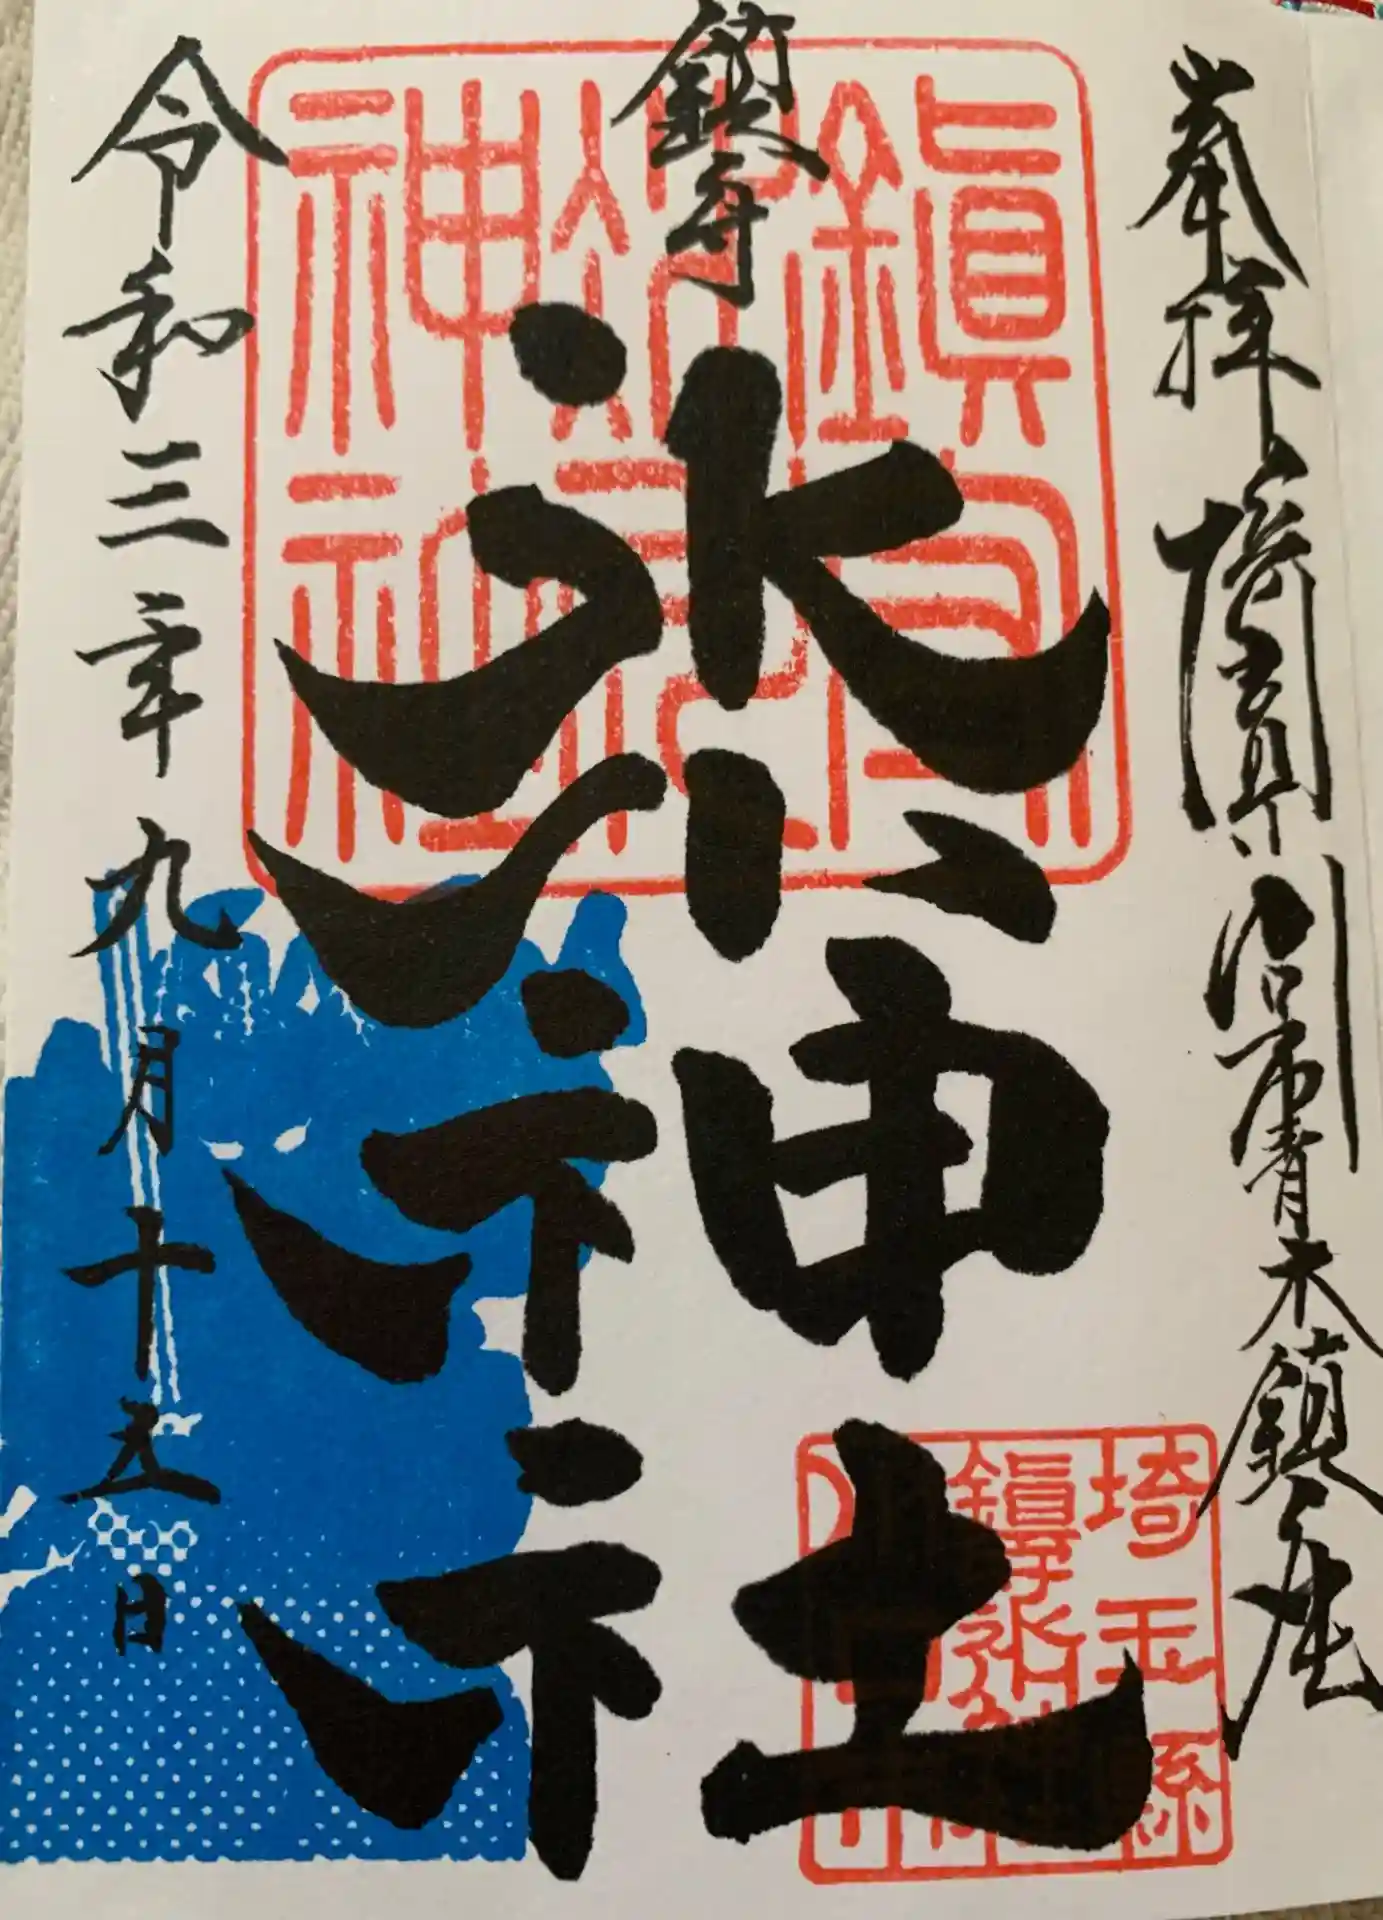 奉拝 埼玉県川口市青木鎮座
鎮守
氷川神社
令和三年九月十五日
鎮守
神社
埼玉縣
鎮守氷川